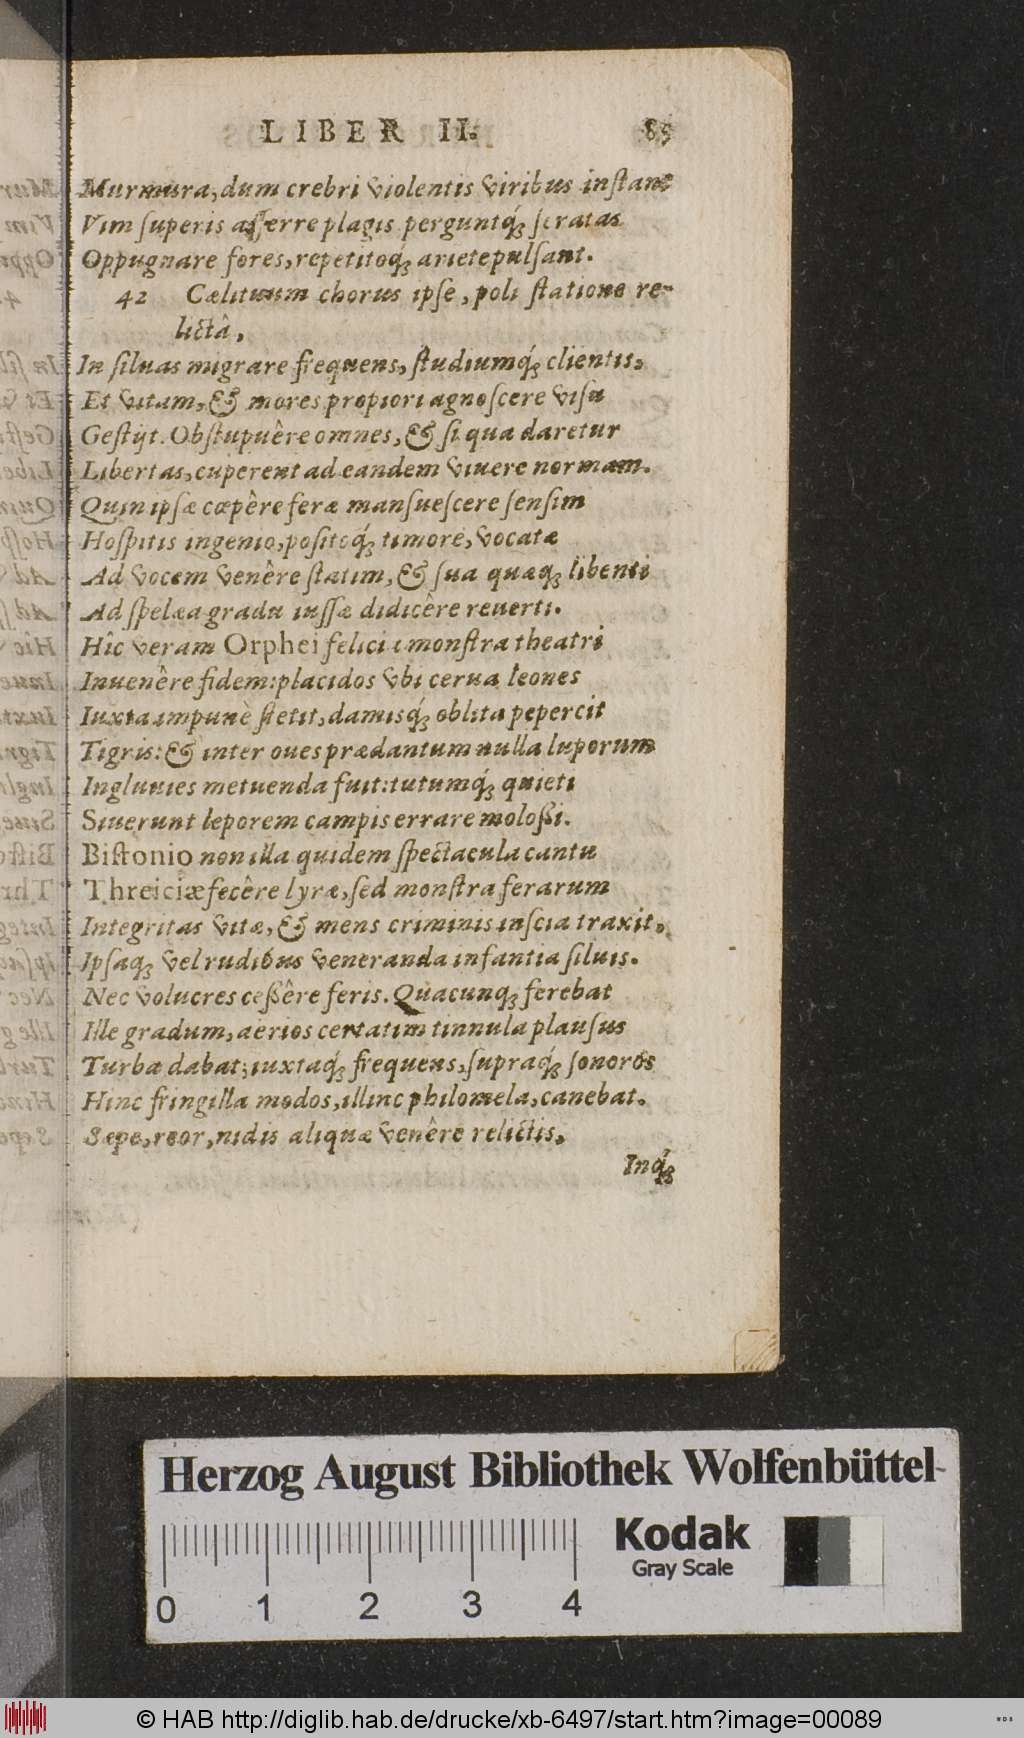 LIBER II. 85
Murmura, dum crebri violentis viribus instant
Vim superis afferre plagis perguntq́; seratas
Oppugnare fores, repetitoq́; ariete pulsant.
42 Cælituum chorus ipse, poli statione re-
lictâ,
In siluas migrare frequens, studiumq́; clientis,
Et vitam, & mores propiori agnoscere visu
Gestijt. Obstupuêre omnes, & si qua daretur
Libertas, cuperent ad eandem viuere normam.
Quin ipsæ cœpêre feræ mansuescere sensim
Hospitis ingenio, positoq́; timore, vocatæ
Ad vocem venêre statim, & sua quæq; libenti
Ad spelæa gradu iussæ didicêre reuerti.
Hîc veram Orphei felicia monstra theatri
Inuenêre fidem: placidos vbi cerua leones
Iuxta impunè stetit, damisq́; oblita pepercit
Tigris: & inter oues prædantum nulla luporum
Ingluuies metuenda fuit: tutumq́; quieti
Siuerunt leporem campis errare molossi.
Bistonio non illa quidem spectacula cantu
Threiciæ fecêre lyræ, sed monstra ferarum
Integritas vitæ, & mens criminis inscia traxit,
Ipsaq; vel rudibus veneranda infantia siluis.
Nec volucres cessêre feris. Quacunq; ferebat
Ille gradum, aerios certatim tinnula plausus
Turba dabat; iuxtaq́; frequens, supraq́; sonoros
Hinc fringilla modos, illinc philomela, canebat.
Sæpe, reor, nidis aliquæ venêre relictis,
Inq́;
Herzog August Bibliothek Wolfenbüttel
Kodak
Gray Scale
0 1 2 3 4
© HAB http://diglib.hab.de/drucke/xb-6497/start.htm?image=00089